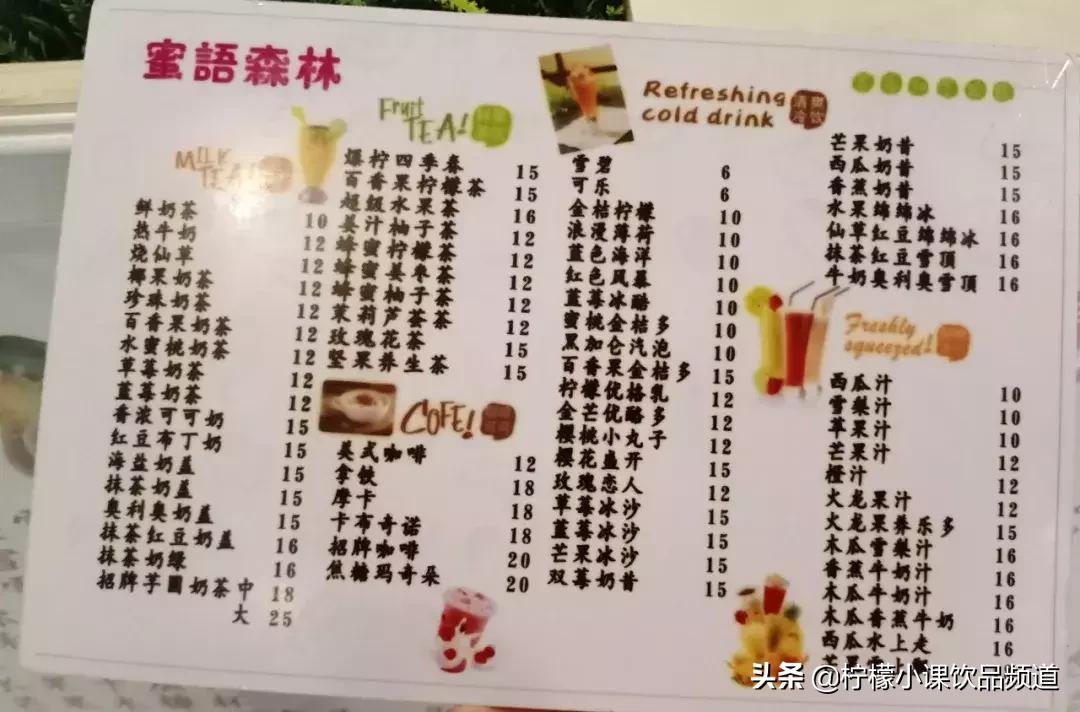 蜜語森林
MILK TEA!
鲜奶茶 10
热牛奶 12
烧仙草 12
椰果奶茶 12
珍珠奶茶 12
百香果奶茶 12
水蜜桃奶茶 12
草莓奶茶 12
蓝莓奶茶 12
香浓可可奶 15
红豆布丁奶 15
海盐奶盖 15
抹茶奶盖 15
奥利奥奶盖 15
抹茶红豆奶盖 16
抹茶奶绿 16
招牌芋圆奶茶 中 18
大 25
Fruit TEA!
爆柠四季春 15
百香果柠檬茶 15
超级水果茶 16
姜汁柚子茶 12
蜂蜜柠檬茶 12
蜂蜜姜枣茶 12
蜂蜜柚子茶 12
蜂蜜芦荟茶 12
茉莉花茶
玫瑰花茶 15
坚果养生茶 15
COFE!
美式咖啡 12
拿铁 18
摩卡 18
卡布奇诺 18
招牌咖啡 20
焦糖玛奇朵 20
Refreshing cold drink
清爽冷饮
雪碧 6
可乐 6
金桔柠檬 10
浪漫薄荷 10
蓝色海洋 10
红色风暴 10
蓝莓冰酷 10
蜜桃金桔多
黑加仑汽泡
百香果金桔多
柠檬优格乳
金芒优酪多
樱桃小丸子
樱花盏开
玫瑰恋人
草莓冰沙 15
蓝莓冰沙 15
芒果冰沙 15
双莓奶昔 15
芒果奶昔 15
西瓜奶昔 15
香蕉奶昔 15
水果绵绵冰 16
仙草红豆绵绵冰 16
抹茶红豆雪顶 16
牛奶奥利奥雪顶 16
Freshly squeezed!
西瓜汁 10
雪梨汁 10
苹果汁 10
芒果汁 12
橙汁 12
火龙果汁 12
火龙果养乐多 15
木瓜雪梨汁 16
香蕉牛奶汁 16
木瓜牛奶汁 16
木瓜香蕉牛奶 16
西瓜水上走 16
头条 @柠檬小课饮品频道